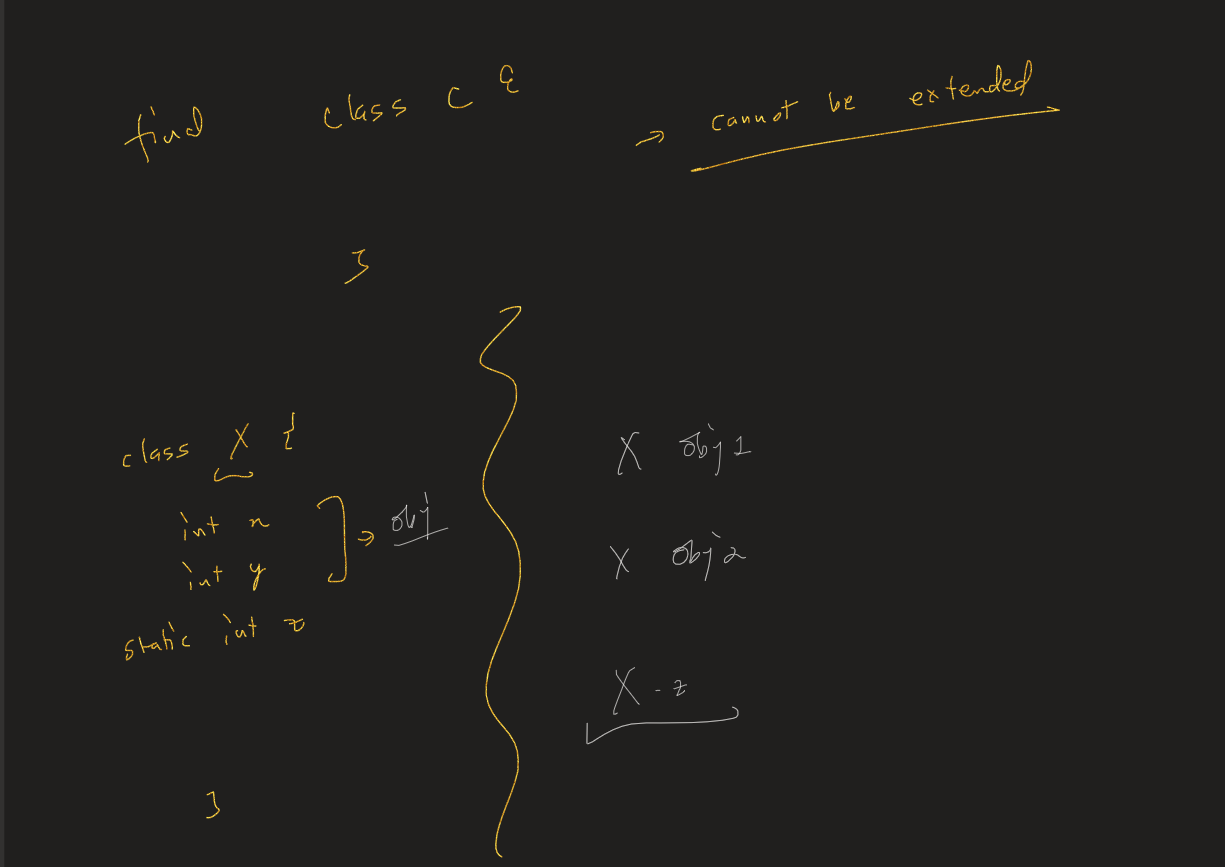 find class C {
→ cannot be extended
}
class X {
int x
int y
→ obj
static int z
}
X obj 1
X obj 2
X . z